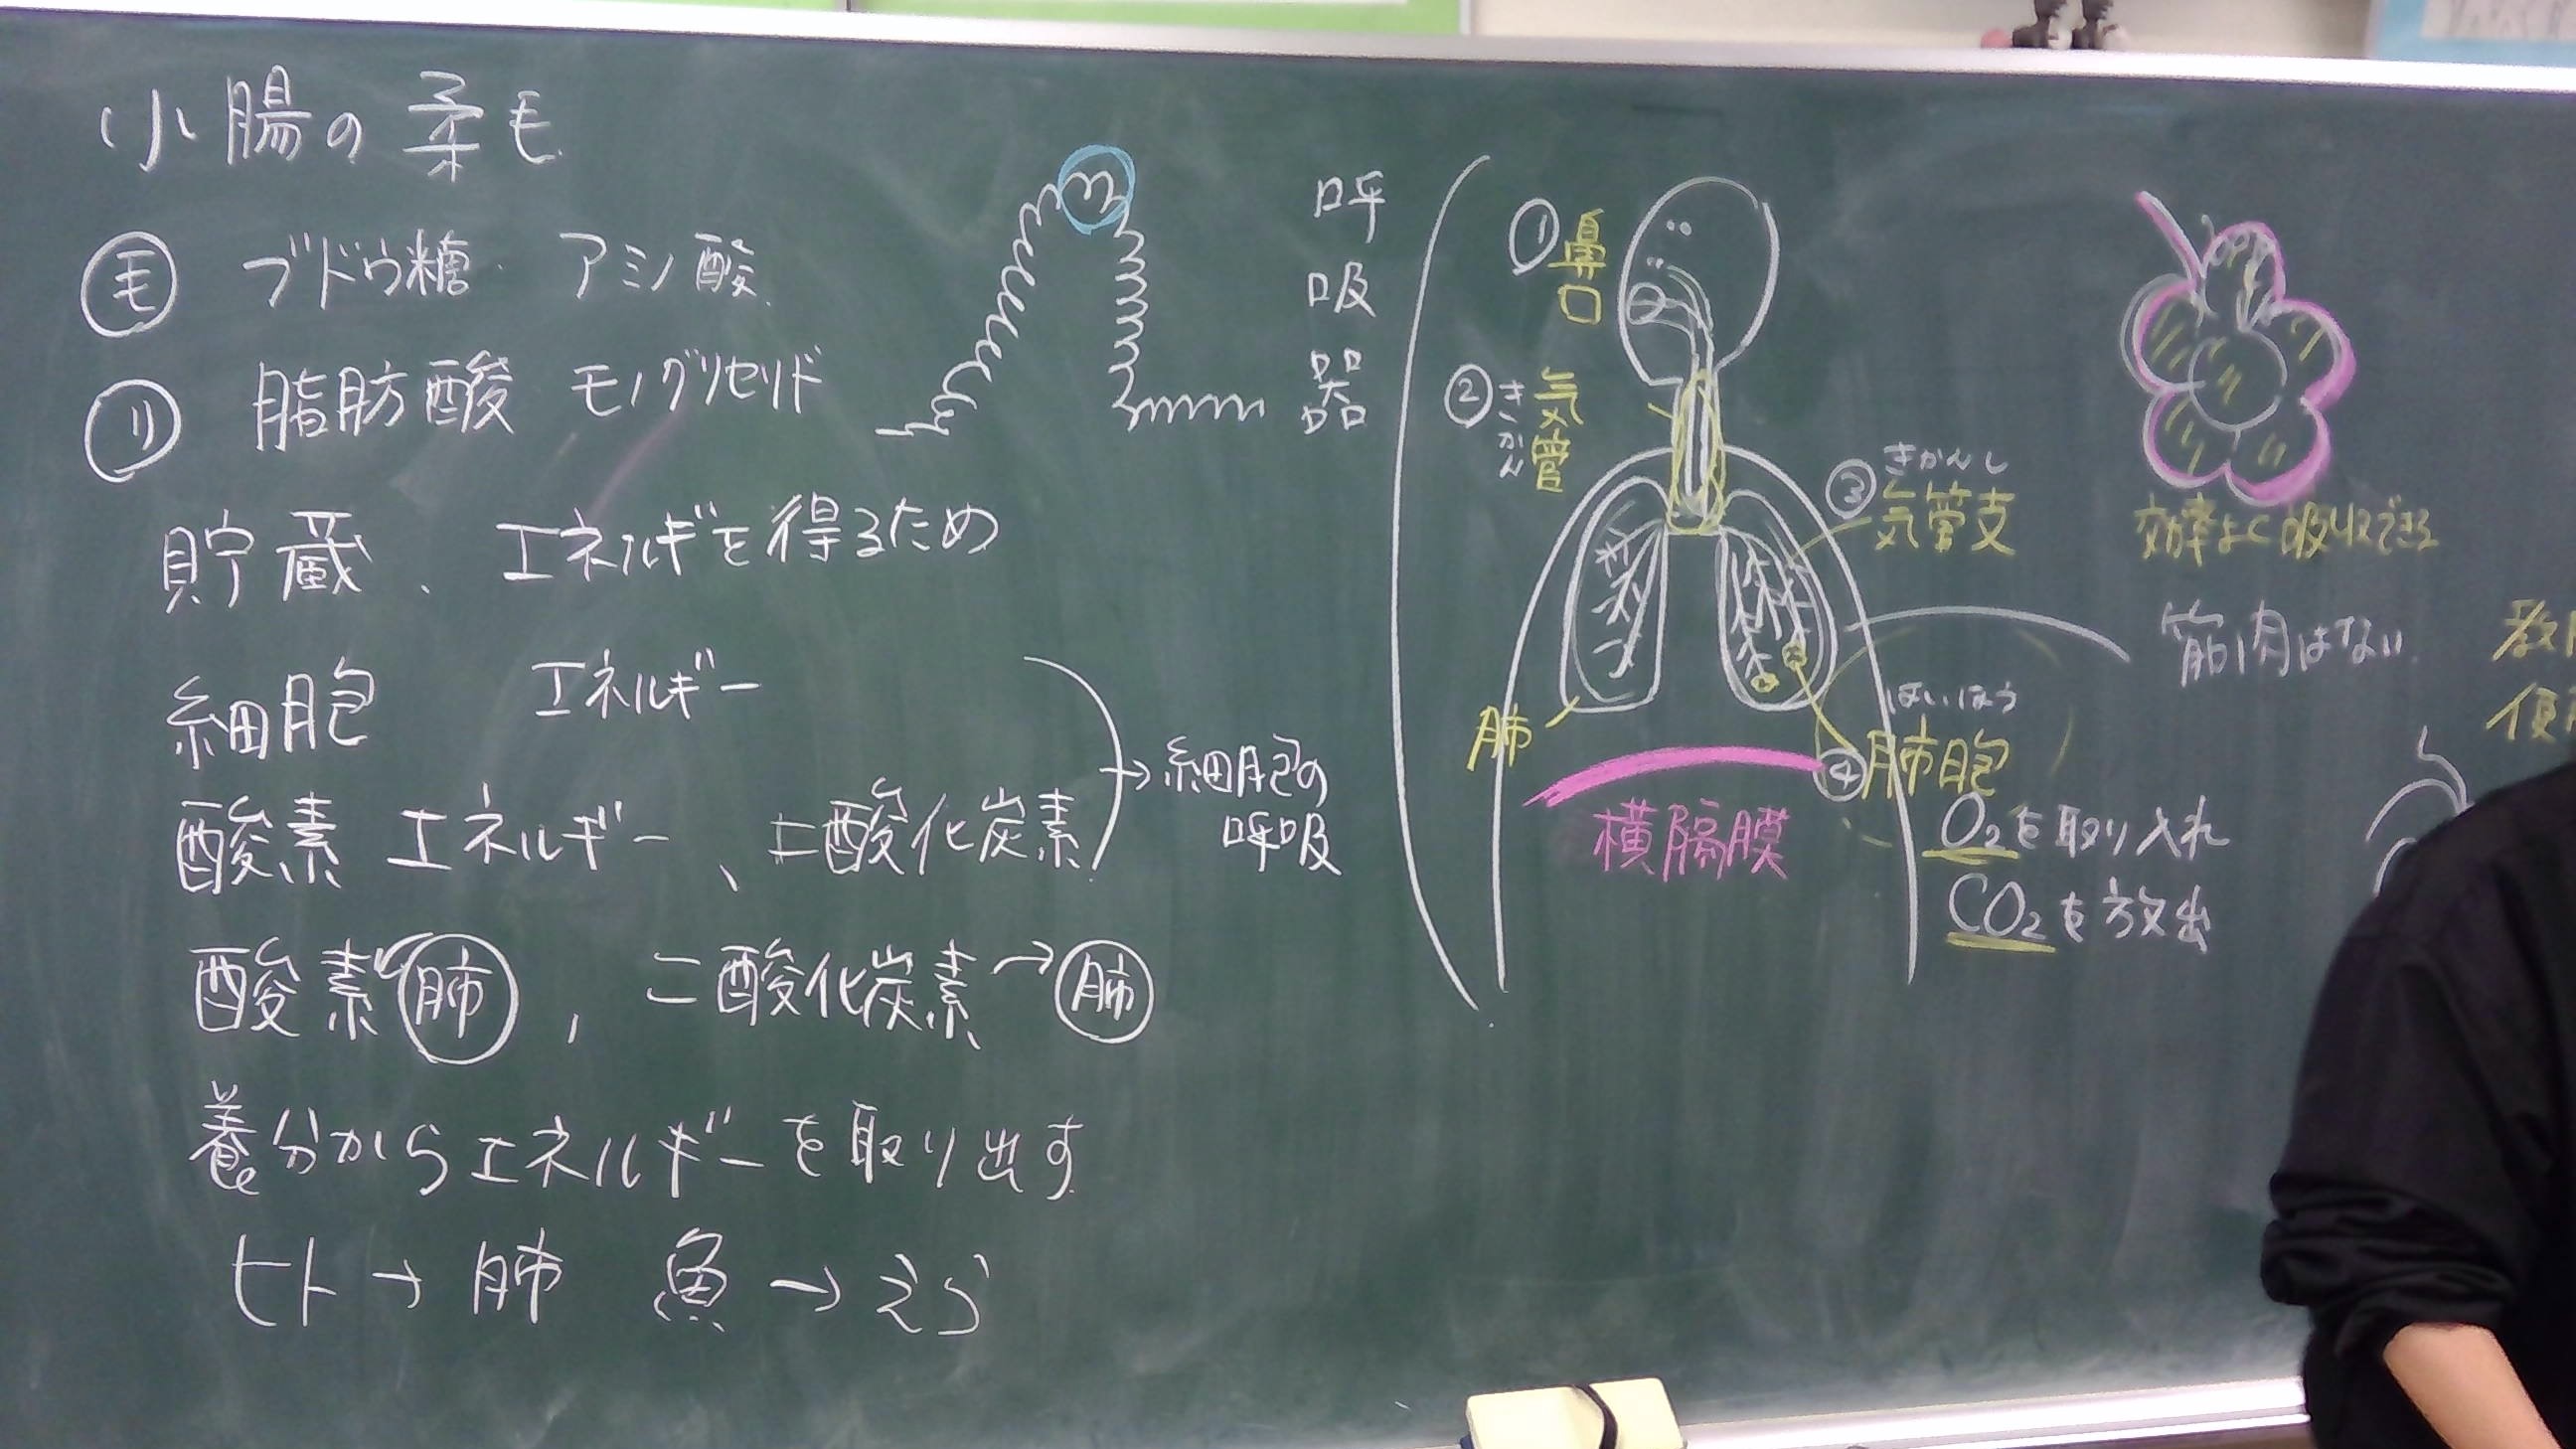 小腸の柔毛
毛 ブドウ糖 アミノ酸
リ 脂肪酸 モノグリセリド
貯蔵、エネルギを得るため
細胞 エネルギー
酸素 エネルギー、二酸化炭素
→細胞の
呼吸
酸素 肺, 二酸化炭素→肺
養分からエネルギーを取り出す
ヒト→肺 魚→えら
呼
吸
器
①鼻
口
②気管
きかん
きかんし
③気管支
肺
はいほう
④肺胞
横隔膜
O₂を取り入れ
CO₂を放出
効率よく吸収できる
筋肉はない